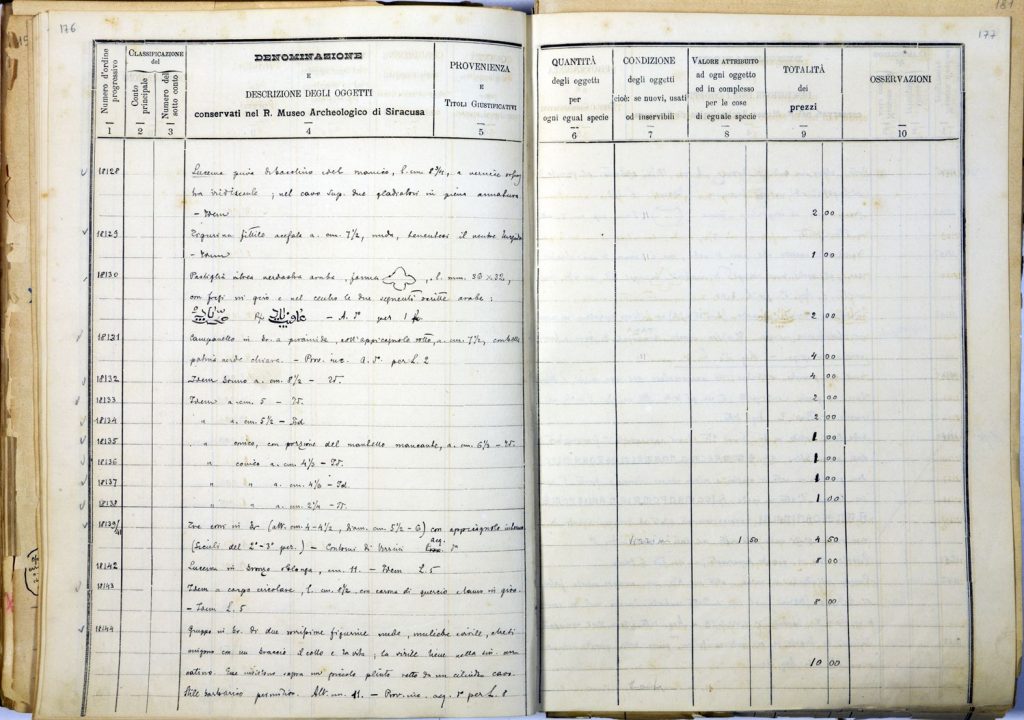 176
Numero d'ordine progressivo
CLASSIFICAZIONE del
Conto principale
Numero del sotto conto
DENOMINAZIONE
E
DESCRIZIONE DEGLI OGGETTI
conservati nel R. Museo Archeologico di Siracusa
PROVENIENZA
E
TITOLI GIUSTIFICATIVI
1 2 3 4 5
18128 Lucerna priva di del manico, l. cm 8 3/4, a vernice
; nel cavo sup. due gladiatori in piena armatura
– Idem
18129 Figurina fittile acefala a. cm. 7 1/2, nuda, il ventre
– Idem
18130 Pastiglia vitrea verdastra araba, forma , l. mm. 36 x 32,
con fregi in giro e nel centro le due seguenti scritte arabe:
– A. per 1
18131 Campanello in br. a piramide, coll'appiccagnolo rotto, a. cm 7 1/2, con bella
patina verde chiara. – Prov. inc. A. per L. 2
18132 Idem a. cm. 8 1/2 – Id.
18133 Idem a. cm. 5 – Id.
18134 " a. cm. 5 1/2 – Id
18135 " conico, con porzione del mantello mancante, a. cm. 6 1/2 – Id.
18136 " conico a. cm. 4 1/2 – Id.
18137 " " a. cm. – Id.
18138 " " a. cm. 2 – Id.
18139/41 Tre coni in br (alt. cm. 4 - 4 1/2, diam. cm. 5 1/2 - 6) con appiccagnolo interno
(Siculi del 2° - 3° per.) – Contorni di acq.
18142 Lucerna in bronzo oblonga, cm. 11. – Idem L. 5
18143 Idem a corpo circolare, l. cm. con corona di quercia in giro.
– Idem L. 5
18144 Gruppo in br. di due figurine nude, muliebre e virile, che si
con un braccio il collo e la vita; la virile tiene nella sin. un
catino. sopra un piccolo plinto retto da un cilindro cavo.
Stile barbarico Alt. cm. 11. – Prov. inc. acq. per L. 8
181
177
QUANTITÀ
degli oggetti
per
ogni egual specie
CONDIZIONE
degli oggetti
cioè: se nuovi, usati
od inservibili
VALORE ATTRIBUITO
ad ogni oggetto
od in complesso
per le cose
di eguale specie
TOTALITÀ
dei
prezzi
OSSERVAZIONI
6 7 8 9 10
" 2 00
" 1 00
2 00
" 4 00
4 00
2 00
2 00
1 00
1 00
1 00
1 00
1 50 4 50
8 00
8 00
10 00